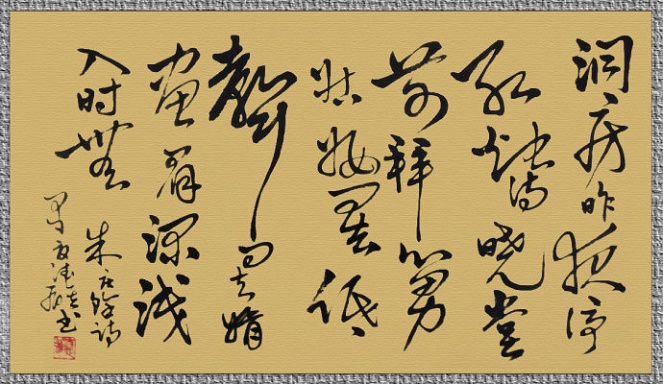 洞房昨夜停
红烛待晓堂
前拜舅
姑妆罢低
聲问夫婿
画眉深浅
入时無
朱庆馀诗
书